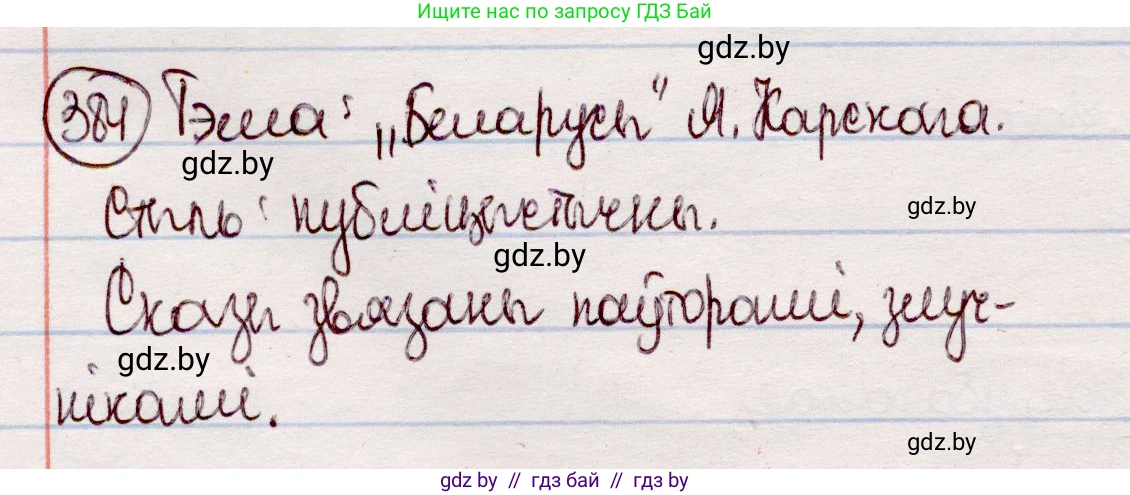 Ищите нас по запросу ГДЗ Бай
gdz.by
384 Тэма: „Беларусы" Я. Карскага.
gdz.by
Стыль: публіцыстычны.
gdz.by
gdz.by
Сказы звязаны паўторамі, злуч-
gdz.by
нікамі.
gdz.by
gdz by // гдз бай // гдз by